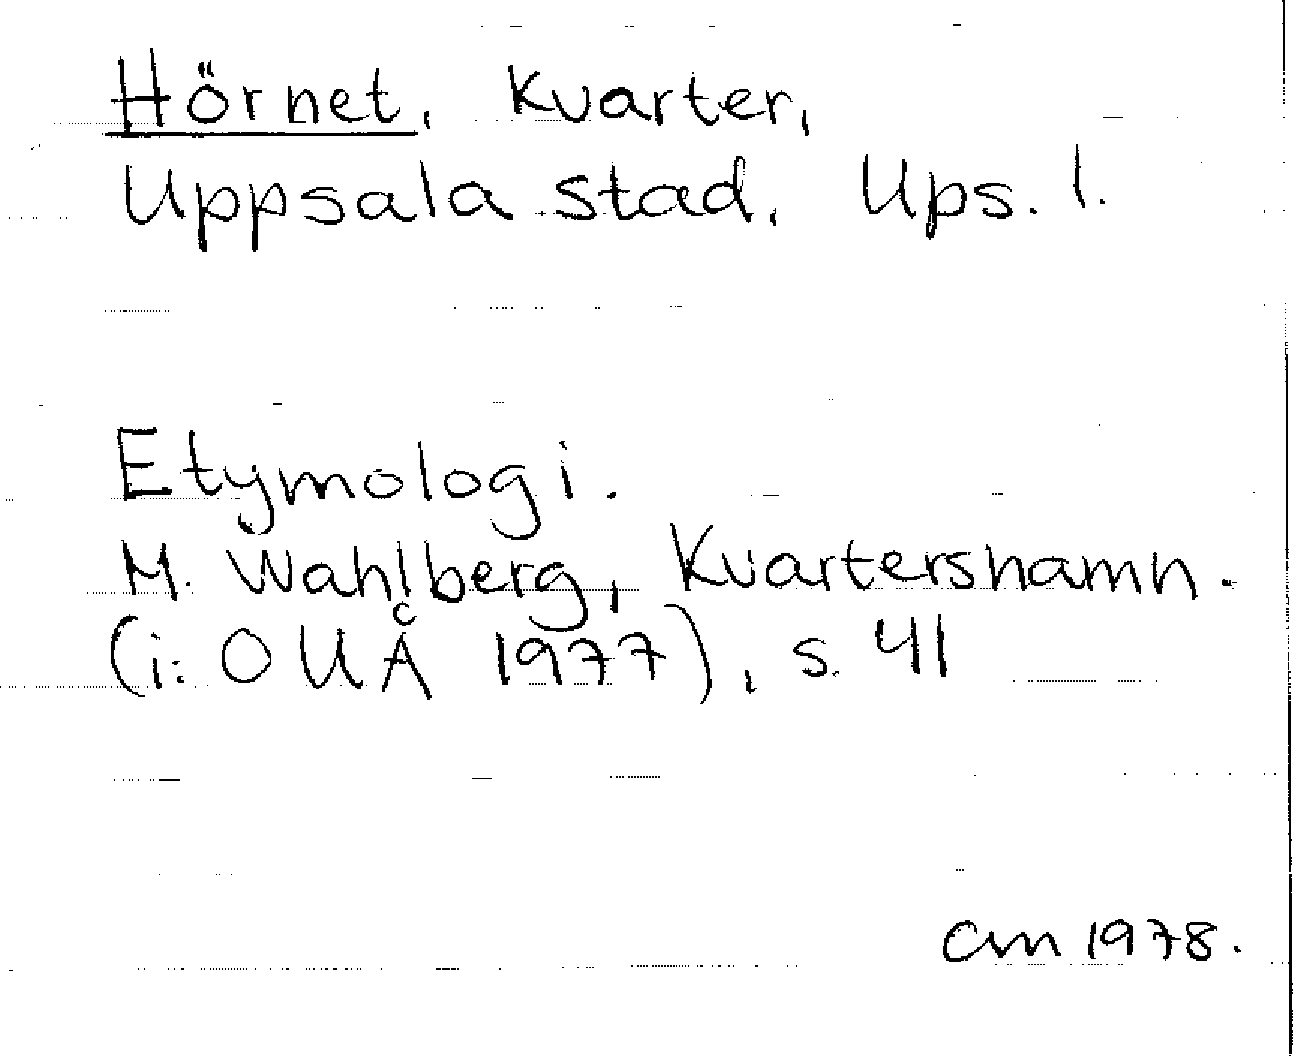 Hörnet, Kvarter,
Uppsala stad, Ups. l.
Etymologi.
M. Wahlberg, Kvartersnamn.
(i: OUÅ 1977), s. 41
CM 1978.